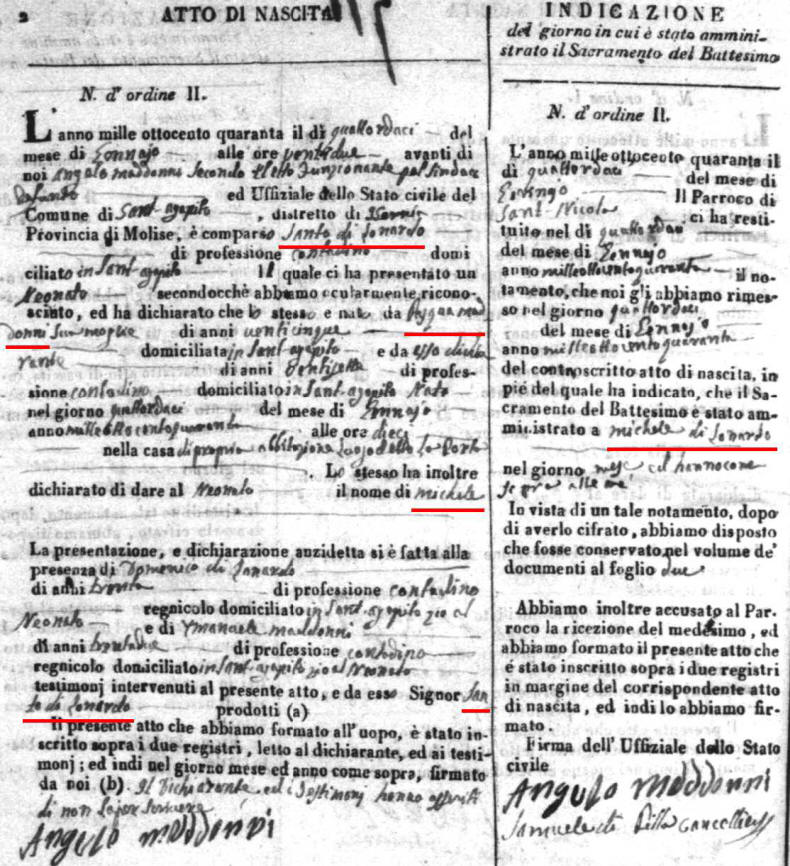 2 ATTO DI NASCITA
N. d' ordine II.
L' anno mille ottocento quaranta il di quattordaci del
mese di Gennajo alle ore ventidue avanti di
noi Angelo maddonni Secondo Eletto funzionante pel Sindaco
defunto ed Uffiziale dello Stato civile del
Comune di Sant agapito , distretto di Isernia
Provincia di Molise, è comparso Santo di Lonardo
di professione contadino domi
ciliato in Sant agapito Il quale ci ha presentato un
Neonato secondocchè abbiamo ocularmente ricono-
sciuto, ed ha dichiarato che lo stesso e nato da Pasqua mad
donni Sua moglie di anni venticinque
domiciliata in Sant agapito e da esso dichia
rante di anni ventisette di profes-
sione contadino domiciliato in Sant agapito Nato
nel giorno quattordaci del mese di Gennajo
anno milleottocentoquaranta alle ore dieci
nella casa di propria abbitazione luogo detto la Porta
. Lo stesso ha inoltre
dichiarato di dare al Neonato il nome di michele
La presentazione, e dichiarazione anzidetta si è fatta alla
presenza di Domenico di Lonardo
di anni trenta di professione contadino
regnicolo domiciliato in Sant agapito zio al
Neonato e di Ymanuele maddonni
di anni di professione contadino
regnicolo domiciliato in Sant agapito zio al Neonato
testimonj intervenuti al presente atto, e da esso Signor San
to di Lonardo prodotti (a)
Il presente atto che abbiamo formato all'uopo, è stato in-
scritto sopra i due registri, letto al dichiarante, ed ai testi-
monj; ed indi nel giorno mese ed anno come sopra, firmato
da noi (b) Il Dichiarante ed i Testimonj hanno asserito
di non saper scrivere
Angelo maddonni
INDICAZIONE
del giorno in cui è stato ammini-
strato il Sacramento del Battesimo
N. d' ordine II.
L'anno mille ottocento quaranta il
di quattordaci del mese di
Il Parroco di
Sant Nicola ci ha resti-
tuito nel di quattordaci
del mese di Gennajo
anno milleottocentoquaranta il no-
tamento, che noi gli abbiamo rimes-
so nel giorno quattordaci
del mese di Gennajo
anno milleottocentoquaranta
del controscritto atto di nascita, in
piè del quale ha indicato, che il Sa-
cramento del Battesimo è stato am-
ministrato a michele di Lonardo
nel giorno mese ed anno come
In vista di un tale notamento, dopo
di averlo cifrato, abbiamo disposto
che fosse conservato nel volume de'
documenti al foglio due
Abbiamo inoltre accusato al Par-
roco la ricezione del medesimo, ed
abbiamo formato il presente atto che
è stato inscritto sopra i due registri
in margine del corrispondente atto
di nascita, ed indi lo abbiamo fir-
mato.
Firma dell' Uffiziale dello Stato
civile
Angelo maddonni
Samuele di Pilla Cancelliere